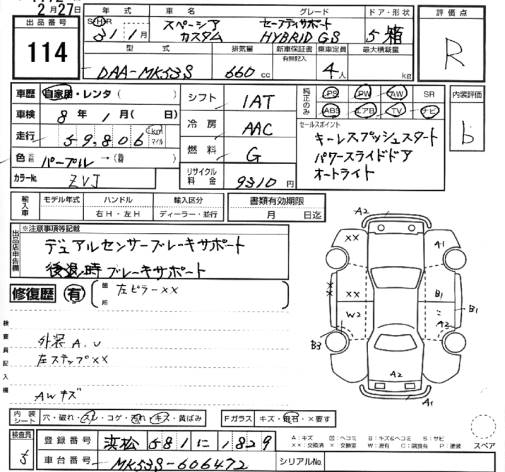 2月27日
出品番号 114
年式 S・H・R 31年1月
車名 スペーシア カスタム
グレード セーフティサポート HYBRID GS
ドア・形状 5 箱
評価点 R
型式 DAA-MK53S
排気量 660 cc
新車保証書 有無記入
乗車定員 4人
最大積載量 kg
車歴 自家用・レンタ( )
車検 8年1月(日)
走行 59,806 km マイル
色 元色 パープル →(替 )
カラーNo. ZVJ
シフト IAT
冷房 AAC
燃料 G
リサイクル料金 9310円
純正のみ PS PW AW SR
ABS エアB TV ナビ
内装評価 b
セールスポイント
キーレスプッシュスタート
パワースライドドア
オートライト
輸入車 モデル年式 ハンドル 右H・左H 輸入区分 ディーラー・並行
書類有効期限 月 日迄
出品店申告欄
※注意事項等記載
デュアルセンサーブレーキサポート
後退時ブレーキサポート
修復歴 有 箇所 左ピラーXX
検査員記入欄
外装A.U
左ステップXX
AWキズ
A2
XX
A1
X
XX
B1
B1
W2
A2
B3
A2
A1
スペア
内装シート 穴・破れ・スレ・コゲ・汚れ・キズ・黄ばみ
Fガラス キズ・飛石・×要す
A:キズ U:ヘコミ B:キズ&ヘコミ S:サビ
XX:交換済 X:交換要 W:波有 C:腐食有 P:塗装
検査員
登録番号 浜松581に1829
車台番号 MK53S-606472
シリアルNo.